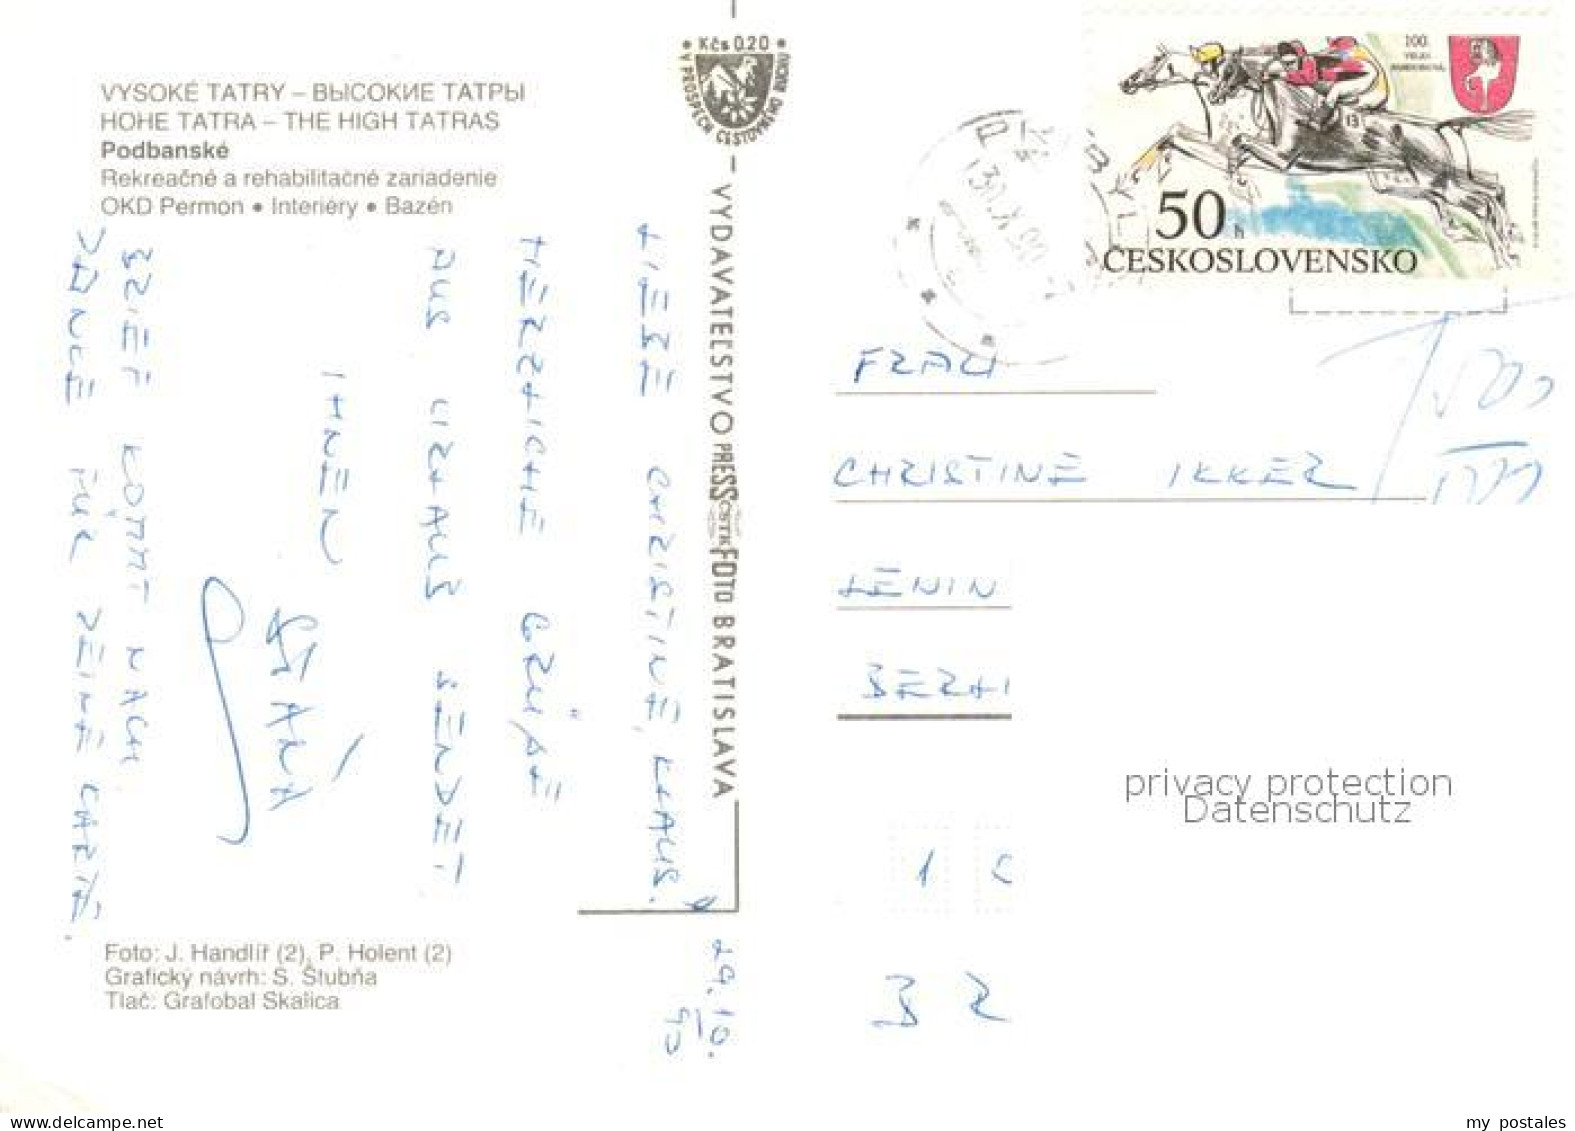 VYSOKÉ TATRY – ВЫСОКИЕ ТАТРЫ
HOHE TATRA – THE HIGH TATRAS
Podbanské
Rekreačné a rehabilitačné zariadenie
OKD Permon • Interiéry • Bazén
29.10.
90
LIEBE CHRISTINE, KLAUS.
HERZLICHE GRÜßE
AUS URLAUB SENDET
IHNEN
BRIEF KOMMT NACH
DANKE FÜR DEINE KARTE.
Foto: J. Handlíř (2), P. Holent (2)
Grafický návrh: S. Štubňa
Tlač: Grafobal Skalica
• Kčs 0,20 •
V PROSPECH CESTOVNÉHO RUCHU
VYDAVATEĽSTVO PRESSFOTO BRATISLAVA
ČSTK
30.X.90
100.
VELKÁ
PARDUBICKÁ
13
50 h
ČESKOSLOVENSKO
FRAU
CHRISTINE IKKER
LENIN
BERLI
1
privacy protection
Datenschutz
my postales